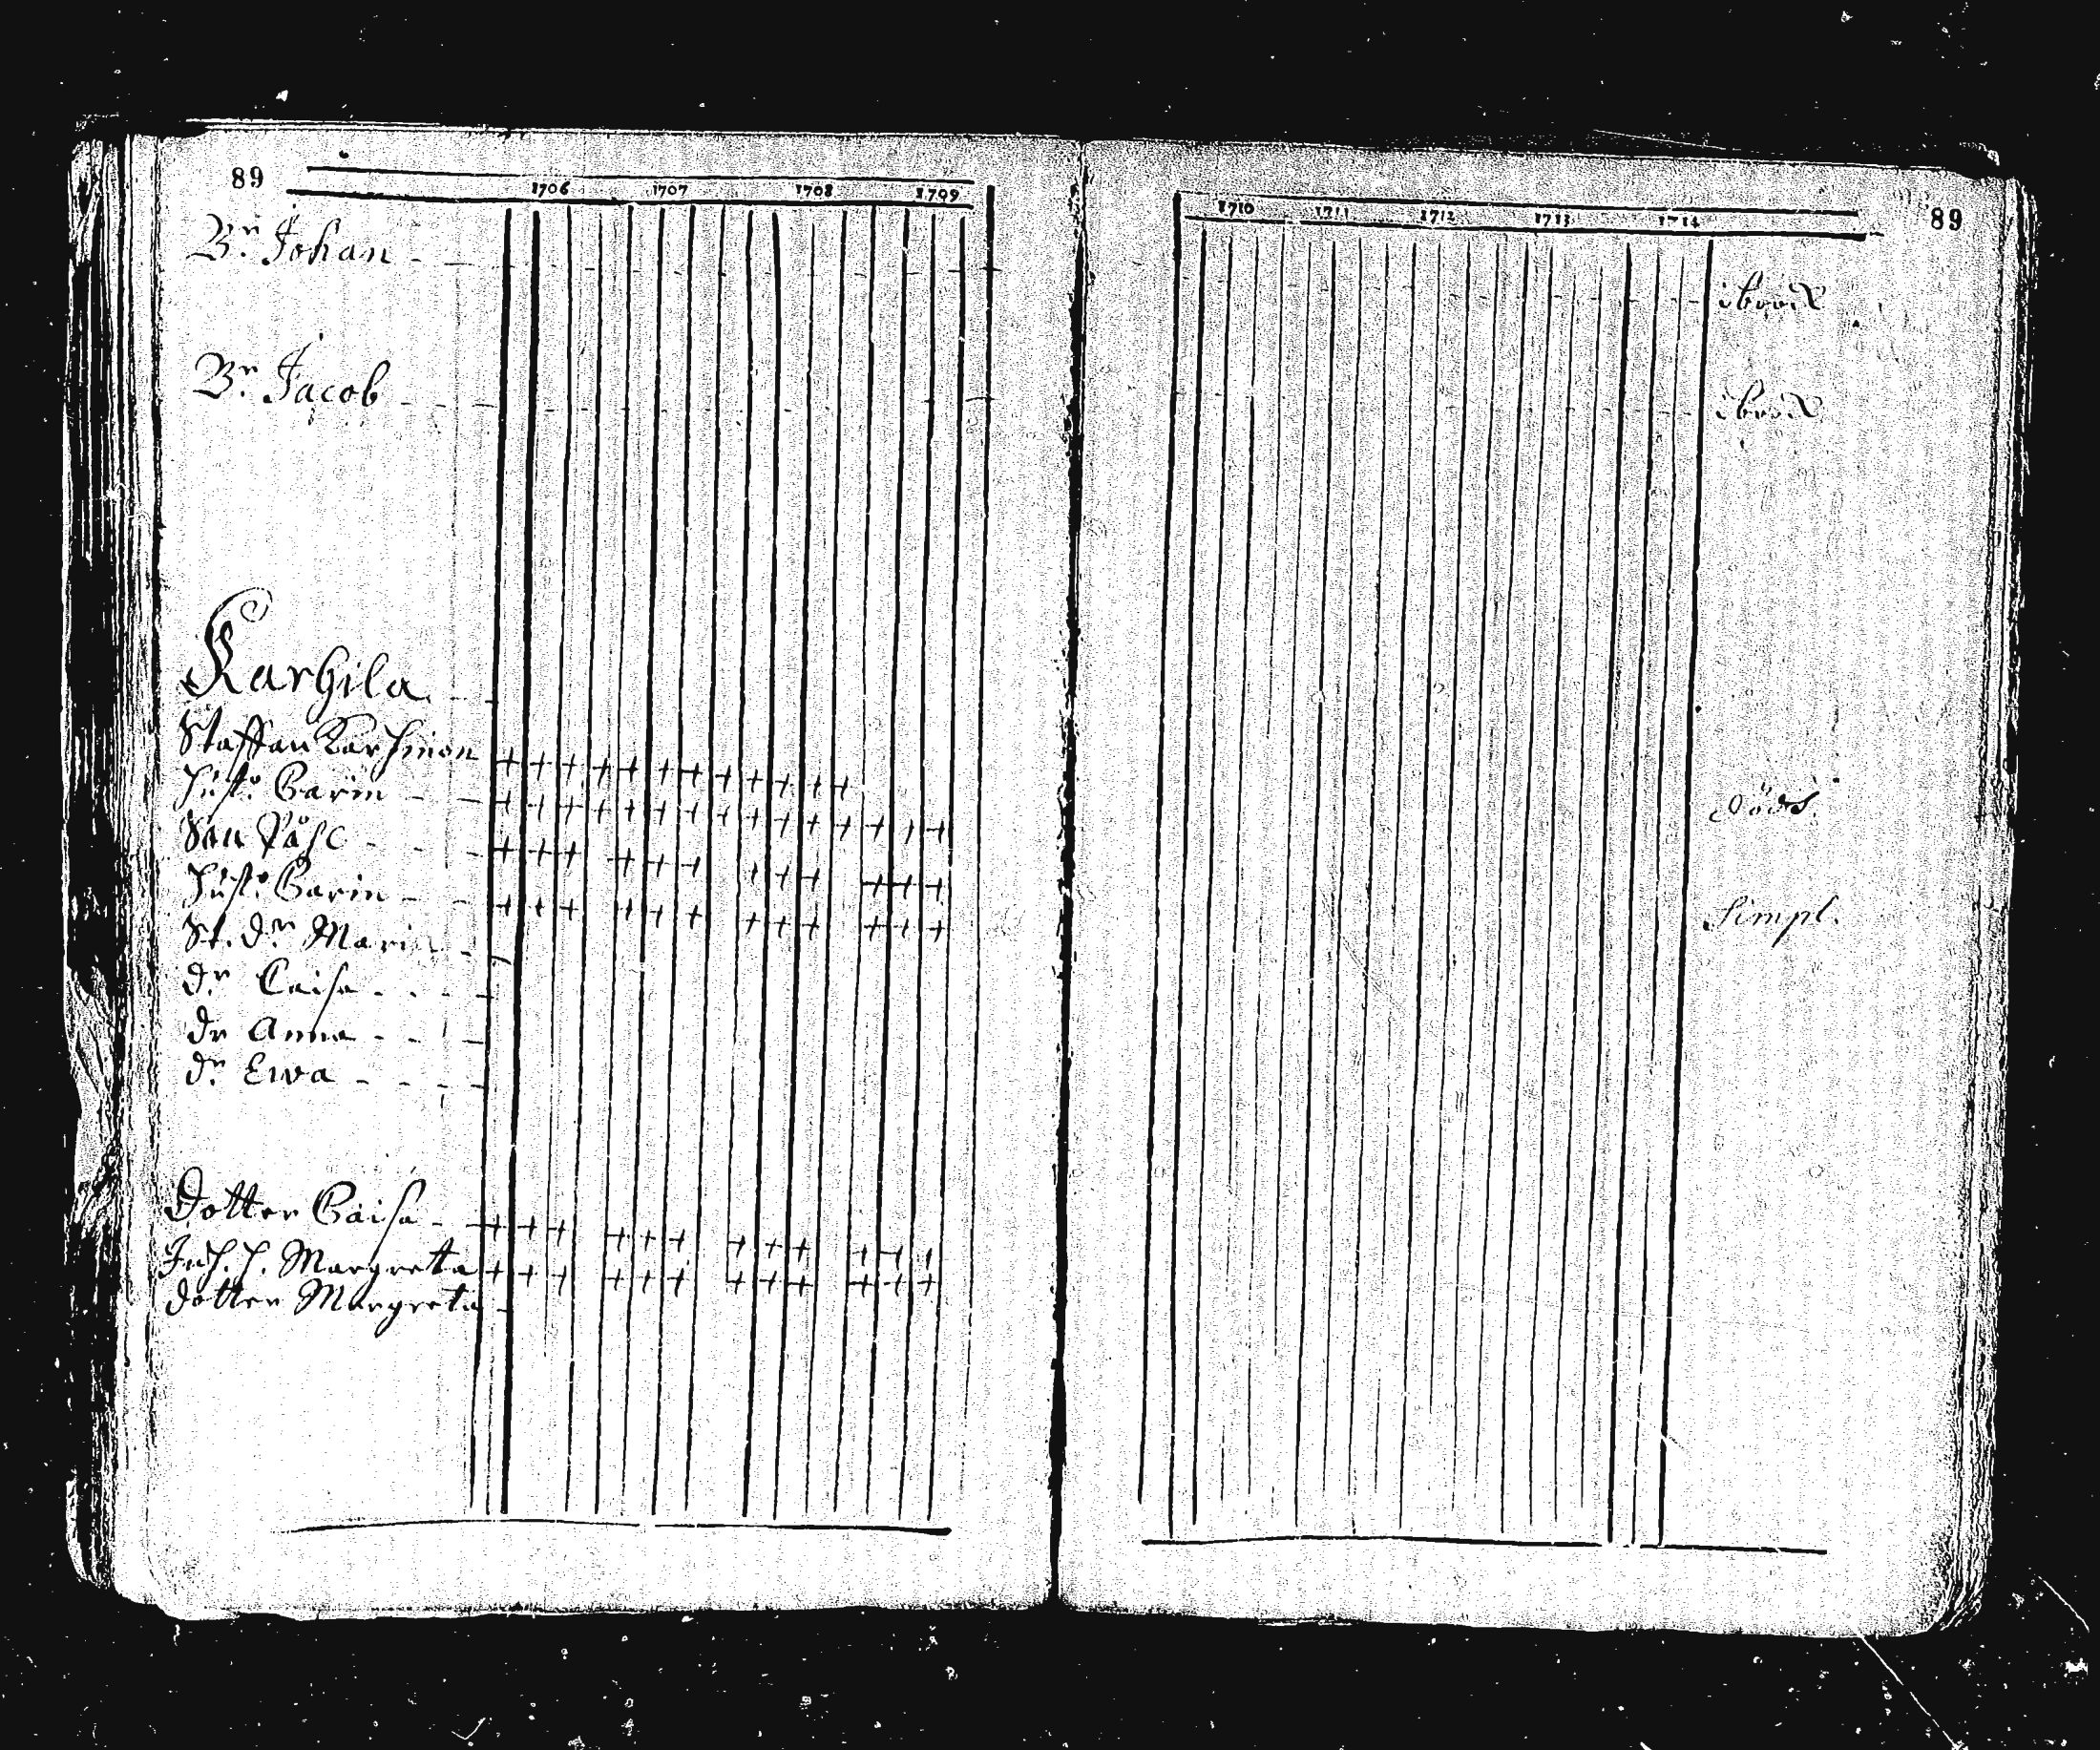 89
1706 1707 1708 1709
Br. Johan
Br. Jacob
Karhila
Staffan Karhinen
Hust. Carin
Son Påhl
Hust. Carin
St. dr Maria
dr Caisa
dr Anna
dr Ewa
Dotter Caisa
Inh. h. Margreta
dotter Margreta
1710 1711 1712 1713 1714
89
död.
Simpl.